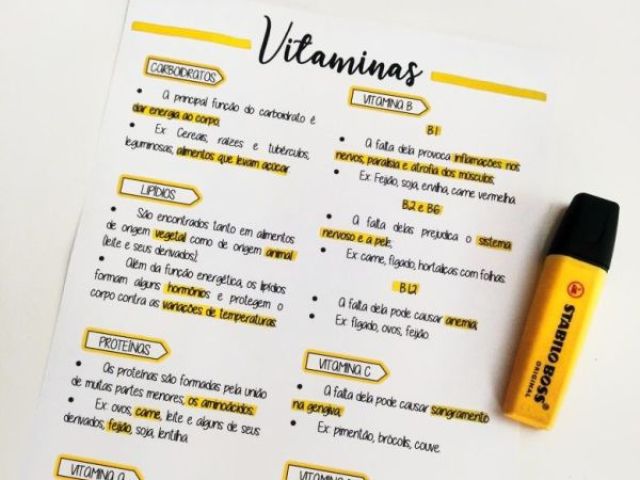 Vitaminas
CARBOIDRATOS
• A principal função do carboidrato é
dar energia ao corpo;
• Ex: Cereais, raízes e tubérculos,
leguminosas, alimentos que levam açúcar.
LIPÍDIOS
• São encontrados tanto em alimentos
de origem vegetal como de origem animal
(leite e seus derivados);
• Além da função energética, os lipídios
formam alguns hormônios e protegem o
corpo contra as variações de temperaturas.
PROTEÍNAS
• As proteínas são formadas pela união
de muitas partes menores, os aminoácidos.
• Ex: ovos, carne, leite e alguns de seus
derivados, feijão, soja, lentilha.
VITAMINA A
VITAMINA B
B1
• A falta dela provoca inflamações nos
nervos, paralisia e atrofia dos músculos;
• Ex: Feijão, soja, ervilha, carne vermelha.
B2 e B6
• A falta delas prejudica o sistema
nervoso e a pele;
• Ex: carne, fígado, hortaliças com folhas.
B12
• A falta dela pode causar anemia;
• Ex: fígado, ovos, feijão
VITAMINA C
• A falta dela pode causar sangramento
na gengiva;
• Ex: pimentão, brócolis, couve.
VITAMINA
STABILO BOSS
ORIGINAL